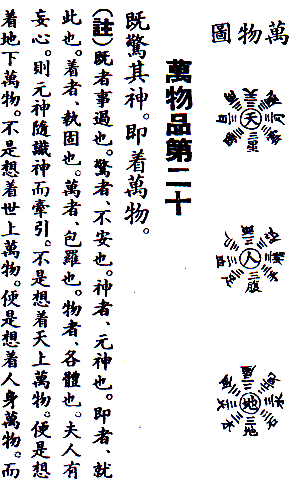 萬物圖
天
人
地
萬物品第二十
既驚其神。即着萬物。
(註)既者事過也。驚者、不安也。神者、元神也。即者、就
此也。着者、執固也。萬者、包羅也。物者、各體也。夫人有
妄心。則元神隨識神而牽引。不是想着天上萬物。便是想
着地下萬物。不是想着世上萬物。便是想着人身萬物。而